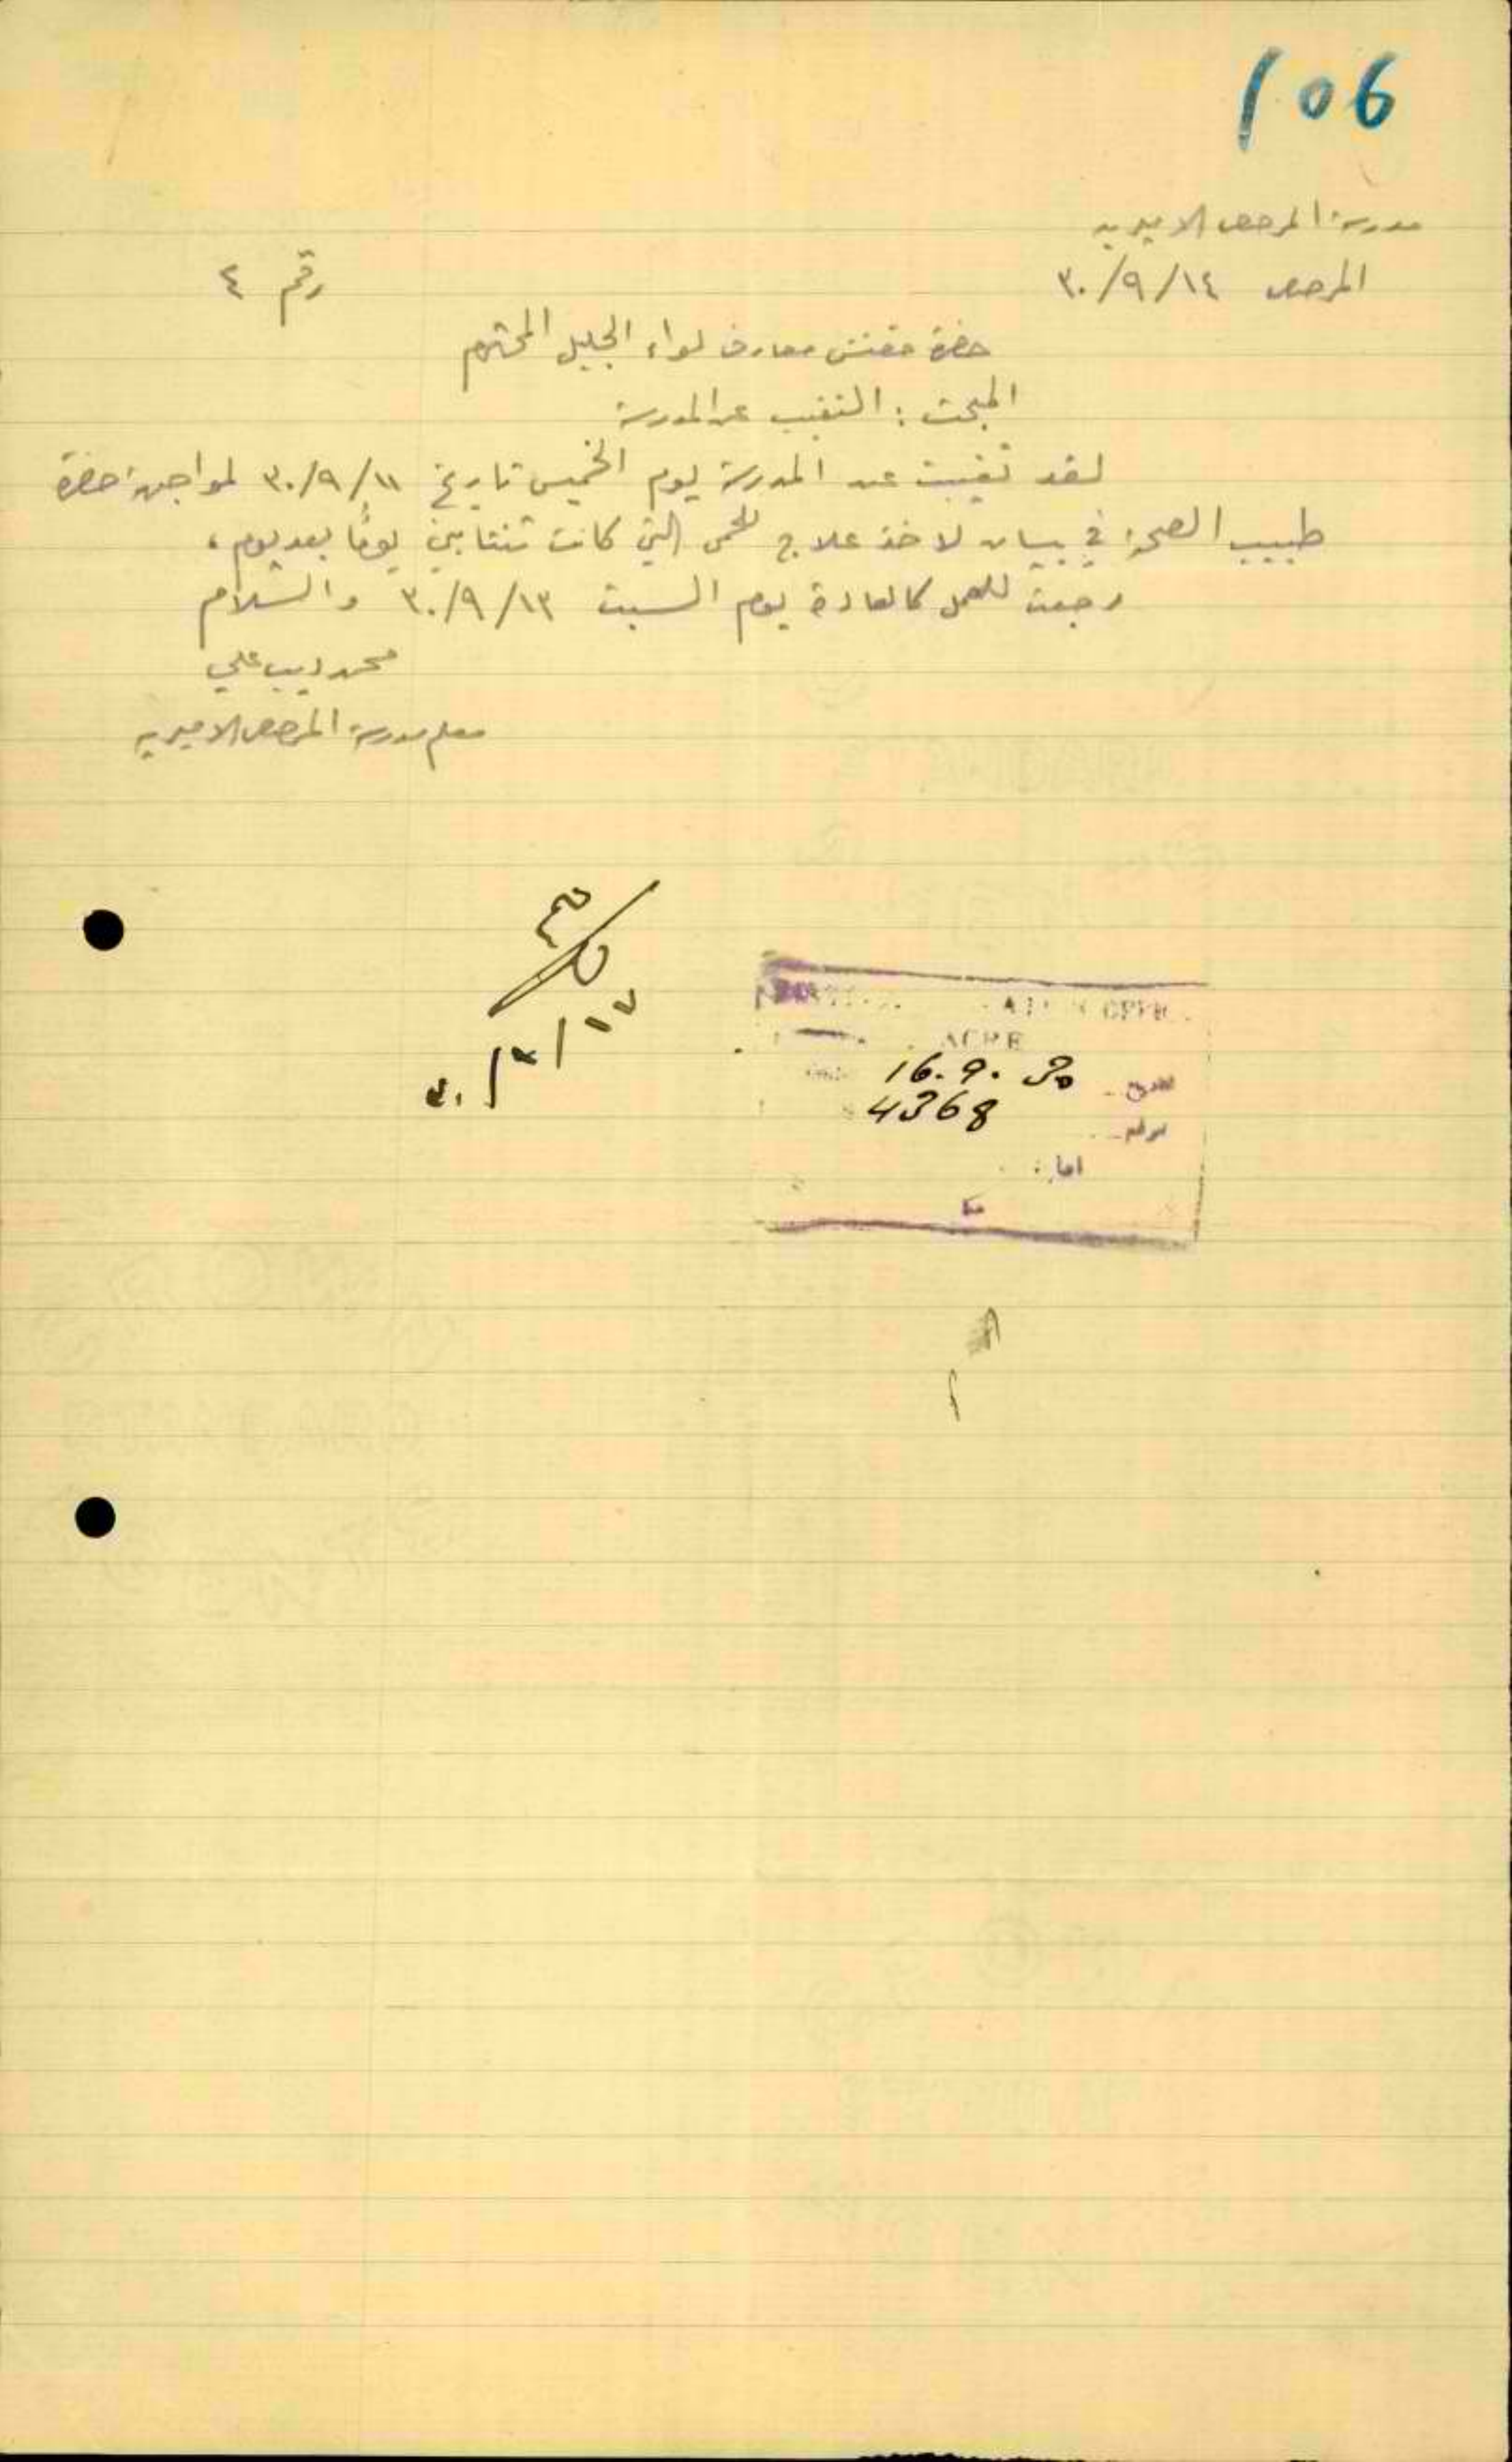 106
مدرسة المرصص الاميريه
المرصص ١٤/٩/٣٠
رقم ٤
حضرة مفتش معارف لواء الجليل المحترم
المبحث : التغيب عن المدرسة
لقد تغيبت عن المدرسة يوم الخميس تاريخ ١١/٩/٣٠ لمواجهة حضرة
طبيب الصحة في بيسان لاخذ علاج للحمى التي كانت تنتابني يومًا بعد يوم ،
رجعت للعمل كالعادة يوم السبت ١٣/٩/٣٠ والسلام
محمد ديب علي
معلم مدرسة المرصص الاميريه
ACRE
16.9.30
4368